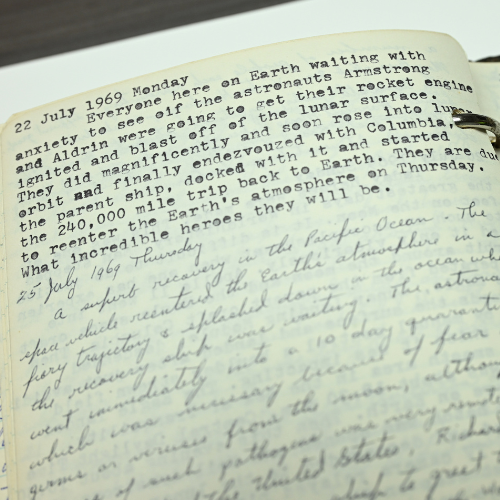 22 July 1969 Monday
Everyone here on Earth waiting with
anxiety to see oif the astronauts Armstrong
and Aldrin were going to get their rocket engine
ignited and blast off of the lunar surface.
They did magnificently and soon rose into lunar
orbit and finally endezvouzed with Columbia,
the parent ship, docked with it and started
the 240,000 mile trip back to Earth. They are due
to reenter the Earth's atmosphere on Thursday.
What incredible heroes they will be.
25 July 1969 Thursday
A superb recovery in the Pacific Ocean. The
space vehicle reentered the Earth's atmosphere in a
fiery trajectory & splashed down in the ocean where
the recovery ship was waiting. The astronauts
went immediately into a 10 day quarantine
which was necessary because of fear
germs or viruses from the moon, although
of such pathogens was very remote
the United States, Richard
to greet